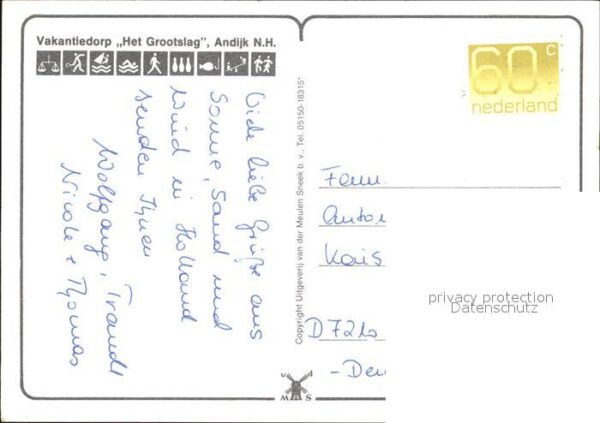 Vakantiedorp „Het Grootslag”, Andijk N.H.
60 c
nederland
Viele liebe Grüße aus
Sonne, Sand und
Wind in Holland
senden Ihnen
Wolfgang, Traudl
Nicole + Thomas
Copyright Uitgeverij van der Meulen Sneek b.v., Tel. 05150-18315*
Fam.
Anton
Kais
D 7210
- Deu
privacy protection
Datenschutz
v d
MAS